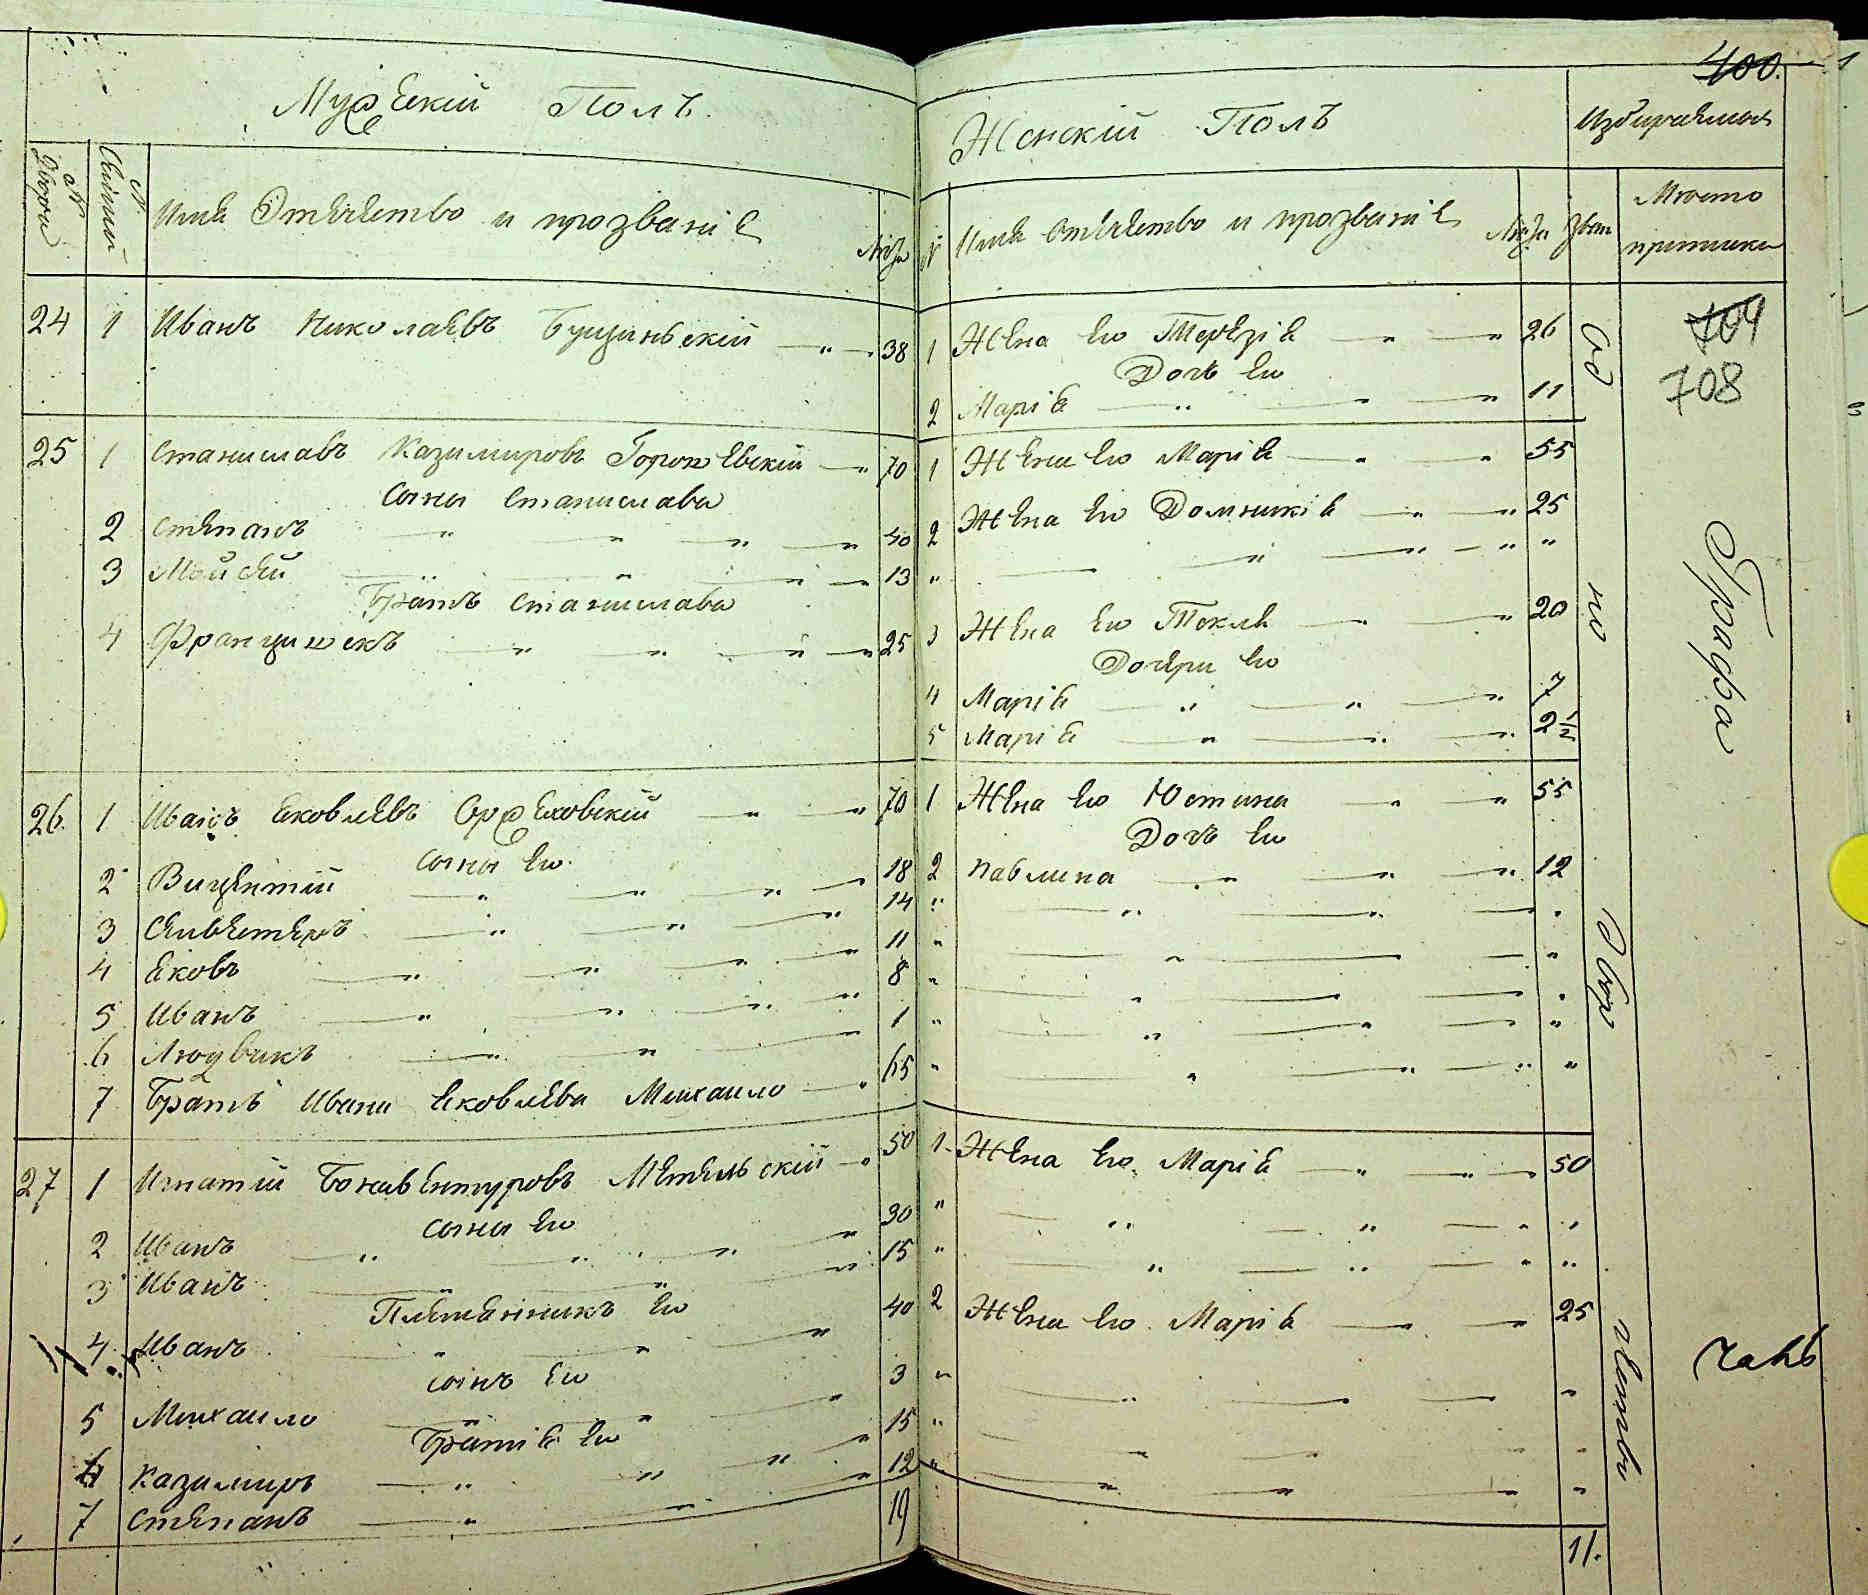 400
Мужескій Полъ.
№ Двора
№ Семьи
Имя Отечество и прозваніе
Лѣта
24 1 Иванъ Николаевъ 38
25 1 Станиславъ Казимировъ 70
Сыны Станислава
2 Степанъ 40
3 13
Братъ Станислава
4 Францишекъ 25
26. 1 Иванъ Яковлевъ Оржеховскій 70
Сыны Его
2 Вицентій 18
3 Сильвестеръ 14
4 Яковъ 11
5 Иванъ 8
6 Людвикъ 1
7 Братъ Ивана Яковлева Михайло 65
27 1 Игнатій Бонавентуровъ Метельскій 50
Сыны Его
2 Иванъ 30
3 Иванъ 15
Племянникъ Его
4 Иванъ 40
Сынъ Его
5 Михайло 3
Братія Его
6 Казимиръ 15
7 Степанъ 12
19
Женскій Полъ
№ Имя Отечество и прозваніе
Лѣта
Мѣсто
1 Жена Его Терезія 26
Дочь Его
2 Марія 11
1 Жена Его Марія 55
2 Жена Его Домникія 25
3 Жена Его Текля 20
Дочери Его
4 Марія 7
5 Марія 2½
1 Жена Его Юстина 55
Дочь Его
2 Павлина 12
1 Жена Его Марія 50
2 Жена Его Марія 25
11.
708
Графа